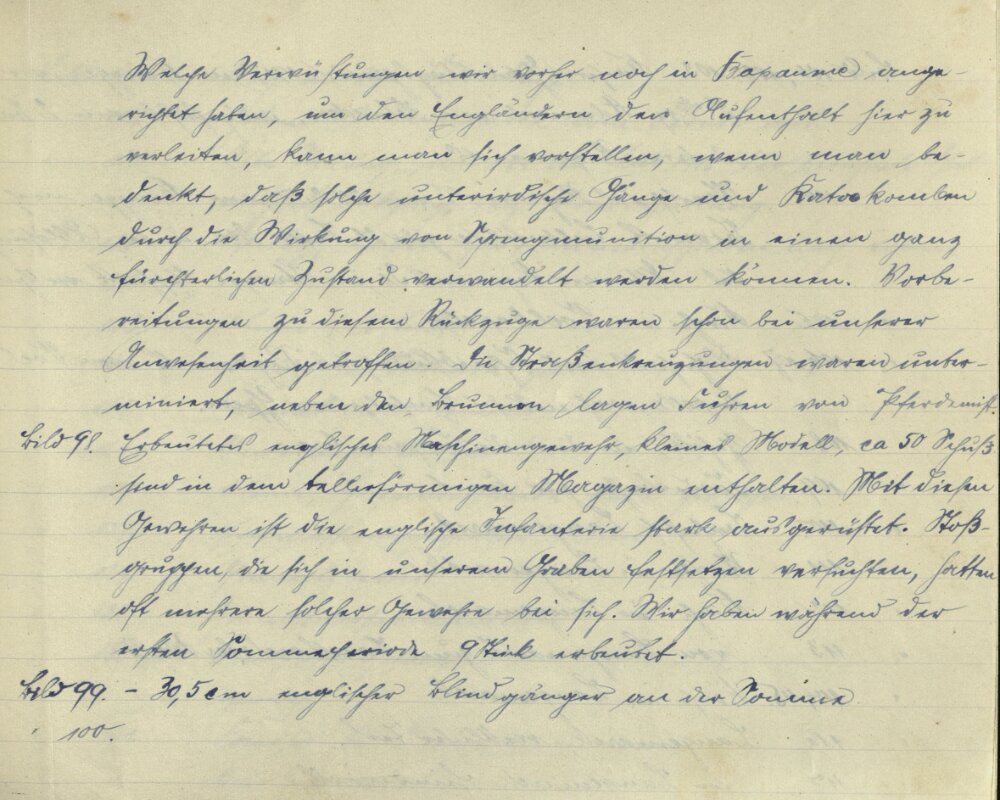 Welche Verwüstungen wir vorher noch in Bapaume ange-
richtet haben, um den Engländern den Aufenthalt hier zu
verleiten, kann man sich vorstellen, wenn man be-
denkt, daß solche unterirdische Gänge und Katakomben
durch die Wirkung von Sprengmunition in einen ganz
fürchterlichen Zustand verwandelt werden können. Vorbe-
reitungen zu diesem Rückzuge waren schon bei unserer
Anwesenheit getroffen. Die Straßenkreuzungen waren unter-
miniert, neben den Brunnen lagen Fuhren von Pferdemist.
Bild 98. Erbeutetes englisches Maschinengewehr, kleines Modell, ca 50 Schuß
sind in dem tellerförmigen Magazin enthalten. Mit diesen
Gewehren ist die englische Infanterie stark ausgerüstet. Stoß-
gruppen, die sich in unserem Graben festsetzen versuchten, hatten
oft mehrere solcher Gewehre bei sich. Wir haben während der
ersten Sommeperiode 9 Stück erbeutet.
Bild 99. - 30,5 cm englischer Blindgänger an der Somme
100.